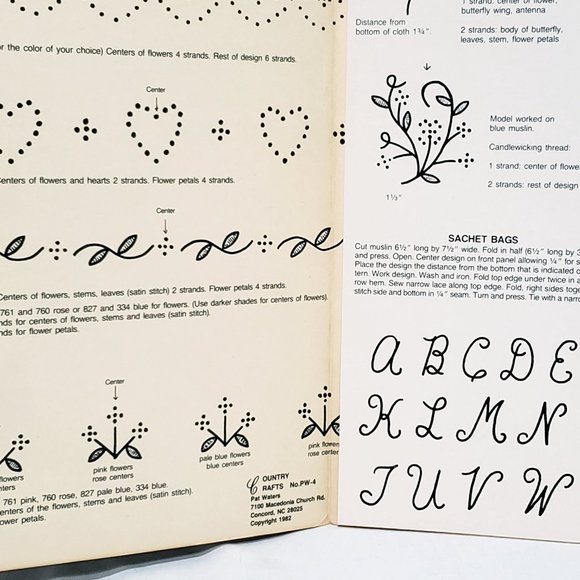 or the color of your choice) Centers of flowers 4 strands. Rest of design 6 strands.
Center
Centers of flowers and hearts 2 strands. Flower petals 4 strands.
Center
Centers of flowers, stems, leaves (satin stitch) 2 strands. Flower petals 4 strands.
761 and 760 rose or 827 and 334 blue for flowers. (Use darker shades for centers of flowers).
nds for centers of flowers, stems and leaves (satin stitch).
nds for flower petals.
Center
flowers
nters
pink flowers
rose centers
pale blue flowers
blue centers
pink flow
rose center
761 pink, 760 rose, 827 pale blue, 334 blue.
enters of the flowers, stems and leaves (satin stitch).
ower petals.
COUNTRY
CRAFTS No.PW-4
Pat Waters
7100 Macedonia Church Rd.
Concord, NC 28025
Copyright 1982
Distance from
bottom of cloth 1¾".
1 strand: center of flower,
butterfly wing, antenna
2 strands: body of butterfly,
leaves, stem, flower petals
Model worked on
blue muslin.
Candlewicking thread:
1 strand: center of flowe
2 strands: rest of design
1½"
SACHET BAGS
Cut muslin 6½" long by 7½" wide. Fold in half (6½" long by 3
and press. Open. Center design on front panel allowing ¼" for s
Place the design the distance from the bottom that is indicated o
tern. Work design. Wash and iron. Fold top edge under twice in a
row hem. Sew narrow lace along top edge. Fold, right sides toge
stitch side and bottom in ¼" seam. Turn and press. Tie with a narro
A B C D E
K L M N
T U V W